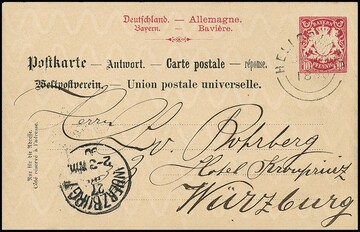 Deutschland. — Allemagne.
Bayern. — Bavière.
BAYERN
10 PFENNIG 10
Postkarte — Antwort. — Carte postale — réponse.
Weltpostverein. Union postale universelle.
Nur für die Adresse.
Côté réservé à l'adresse.
Herrn
v. Rohrberg
Hotel Kronprinz
Würzburg
WÜRZBURG
27
2-3 Nm.
90
HEL